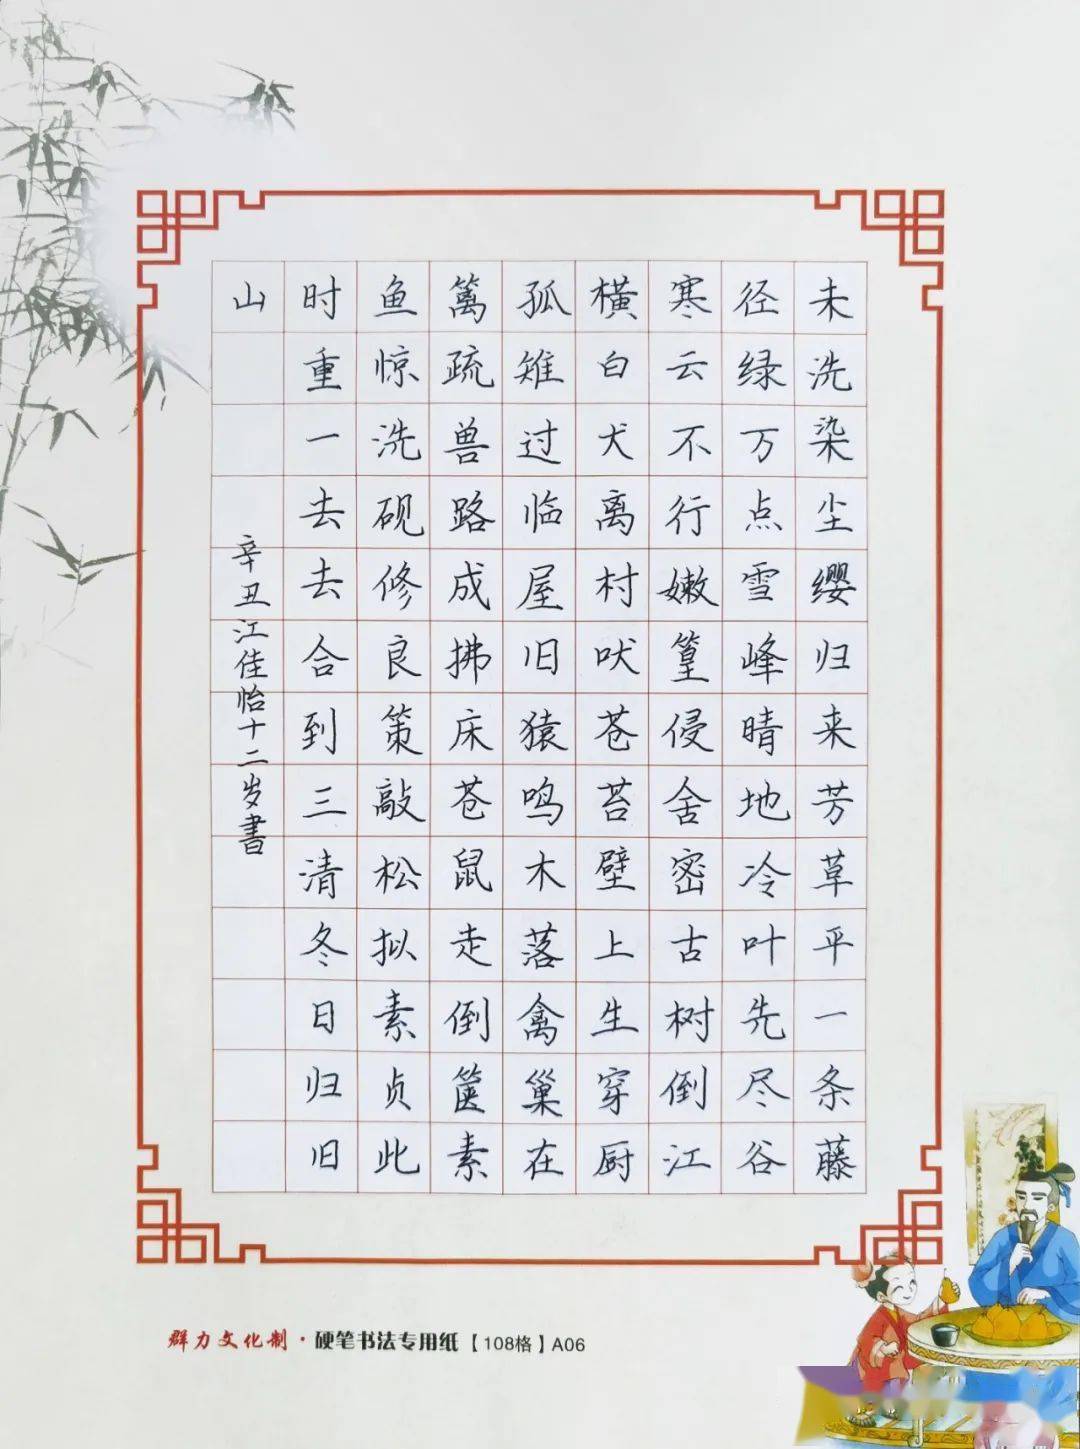 未洗染尘缨归来芳草平一条藤
径绿万点雪峰晴地冷叶先尽谷
寒云不行嫩篁侵舍密古树倒江
横白犬离村吠苍苔壁上生穿厨
孤雉过临屋旧猿鸣木落禽巢在
篱疏兽路成拂床苍鼠走倒箧素
鱼惊洗砚修良策敲松拟素贞此
时重一去去合到三清冬日归旧
山
辛丑江佳怡十二岁書
群力文化制·硬笔书法专用纸【108格】A06